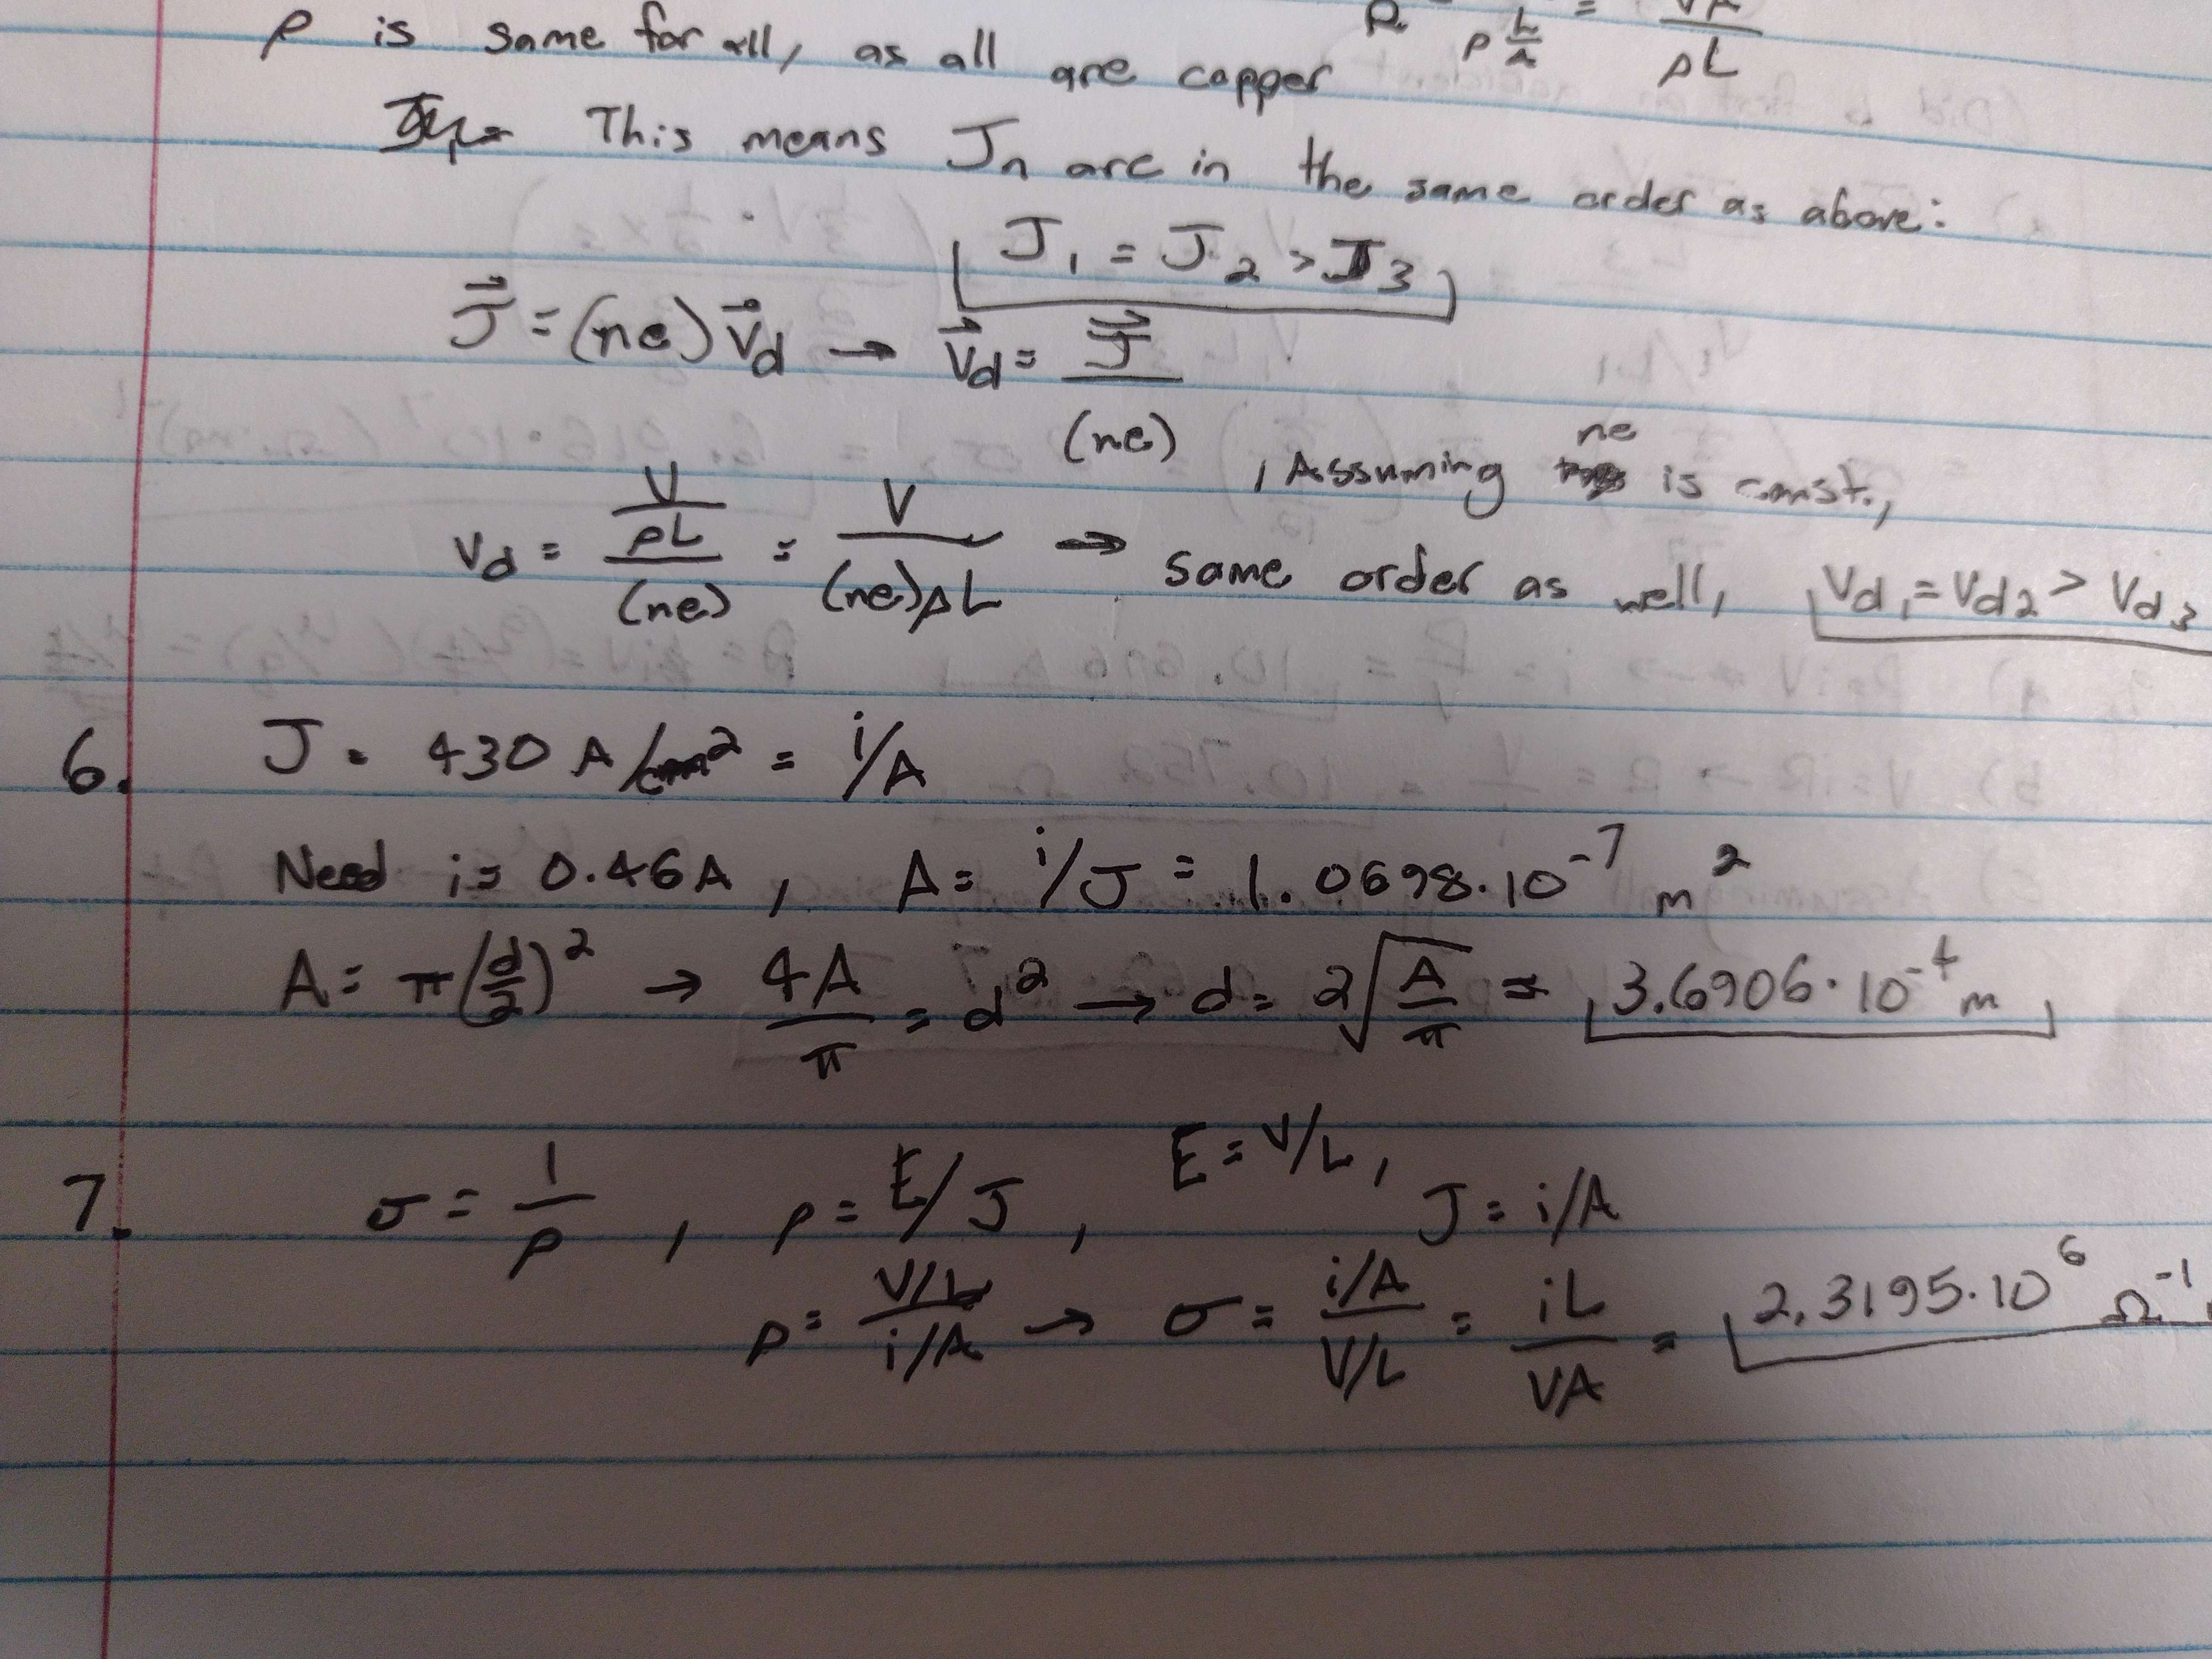 ρ is same for all, as all are copper
R ρ L/A = VA/ρL
This means Jn are in the same order as above:
J₁ = J₂ > J₃
J⃗ = (ne) v⃗d → v⃗d = J⃗/(ne)
Vd = (V/ρL)/(ne) = V/((ne)ρL) → , Assuming ne is const., same order as well, Vd₁ = Vd₂ > Vd₃
6. J = 430 A/cm² = i/A
Need i = 0.46A, A = i/J = 1.0698·10⁻⁷ m²
A = π(d/2)² → 4A/π = d² → d = 2√(A/π) = 3.6906·10⁻⁴ m
7. σ = 1/ρ , ρ = E/J , E = V/L, J = i/A
ρ = (V/L)/(i/A) → σ = (i/A)/(V/L) = iL/VA = 2.3195·10⁶ Ω⁻¹